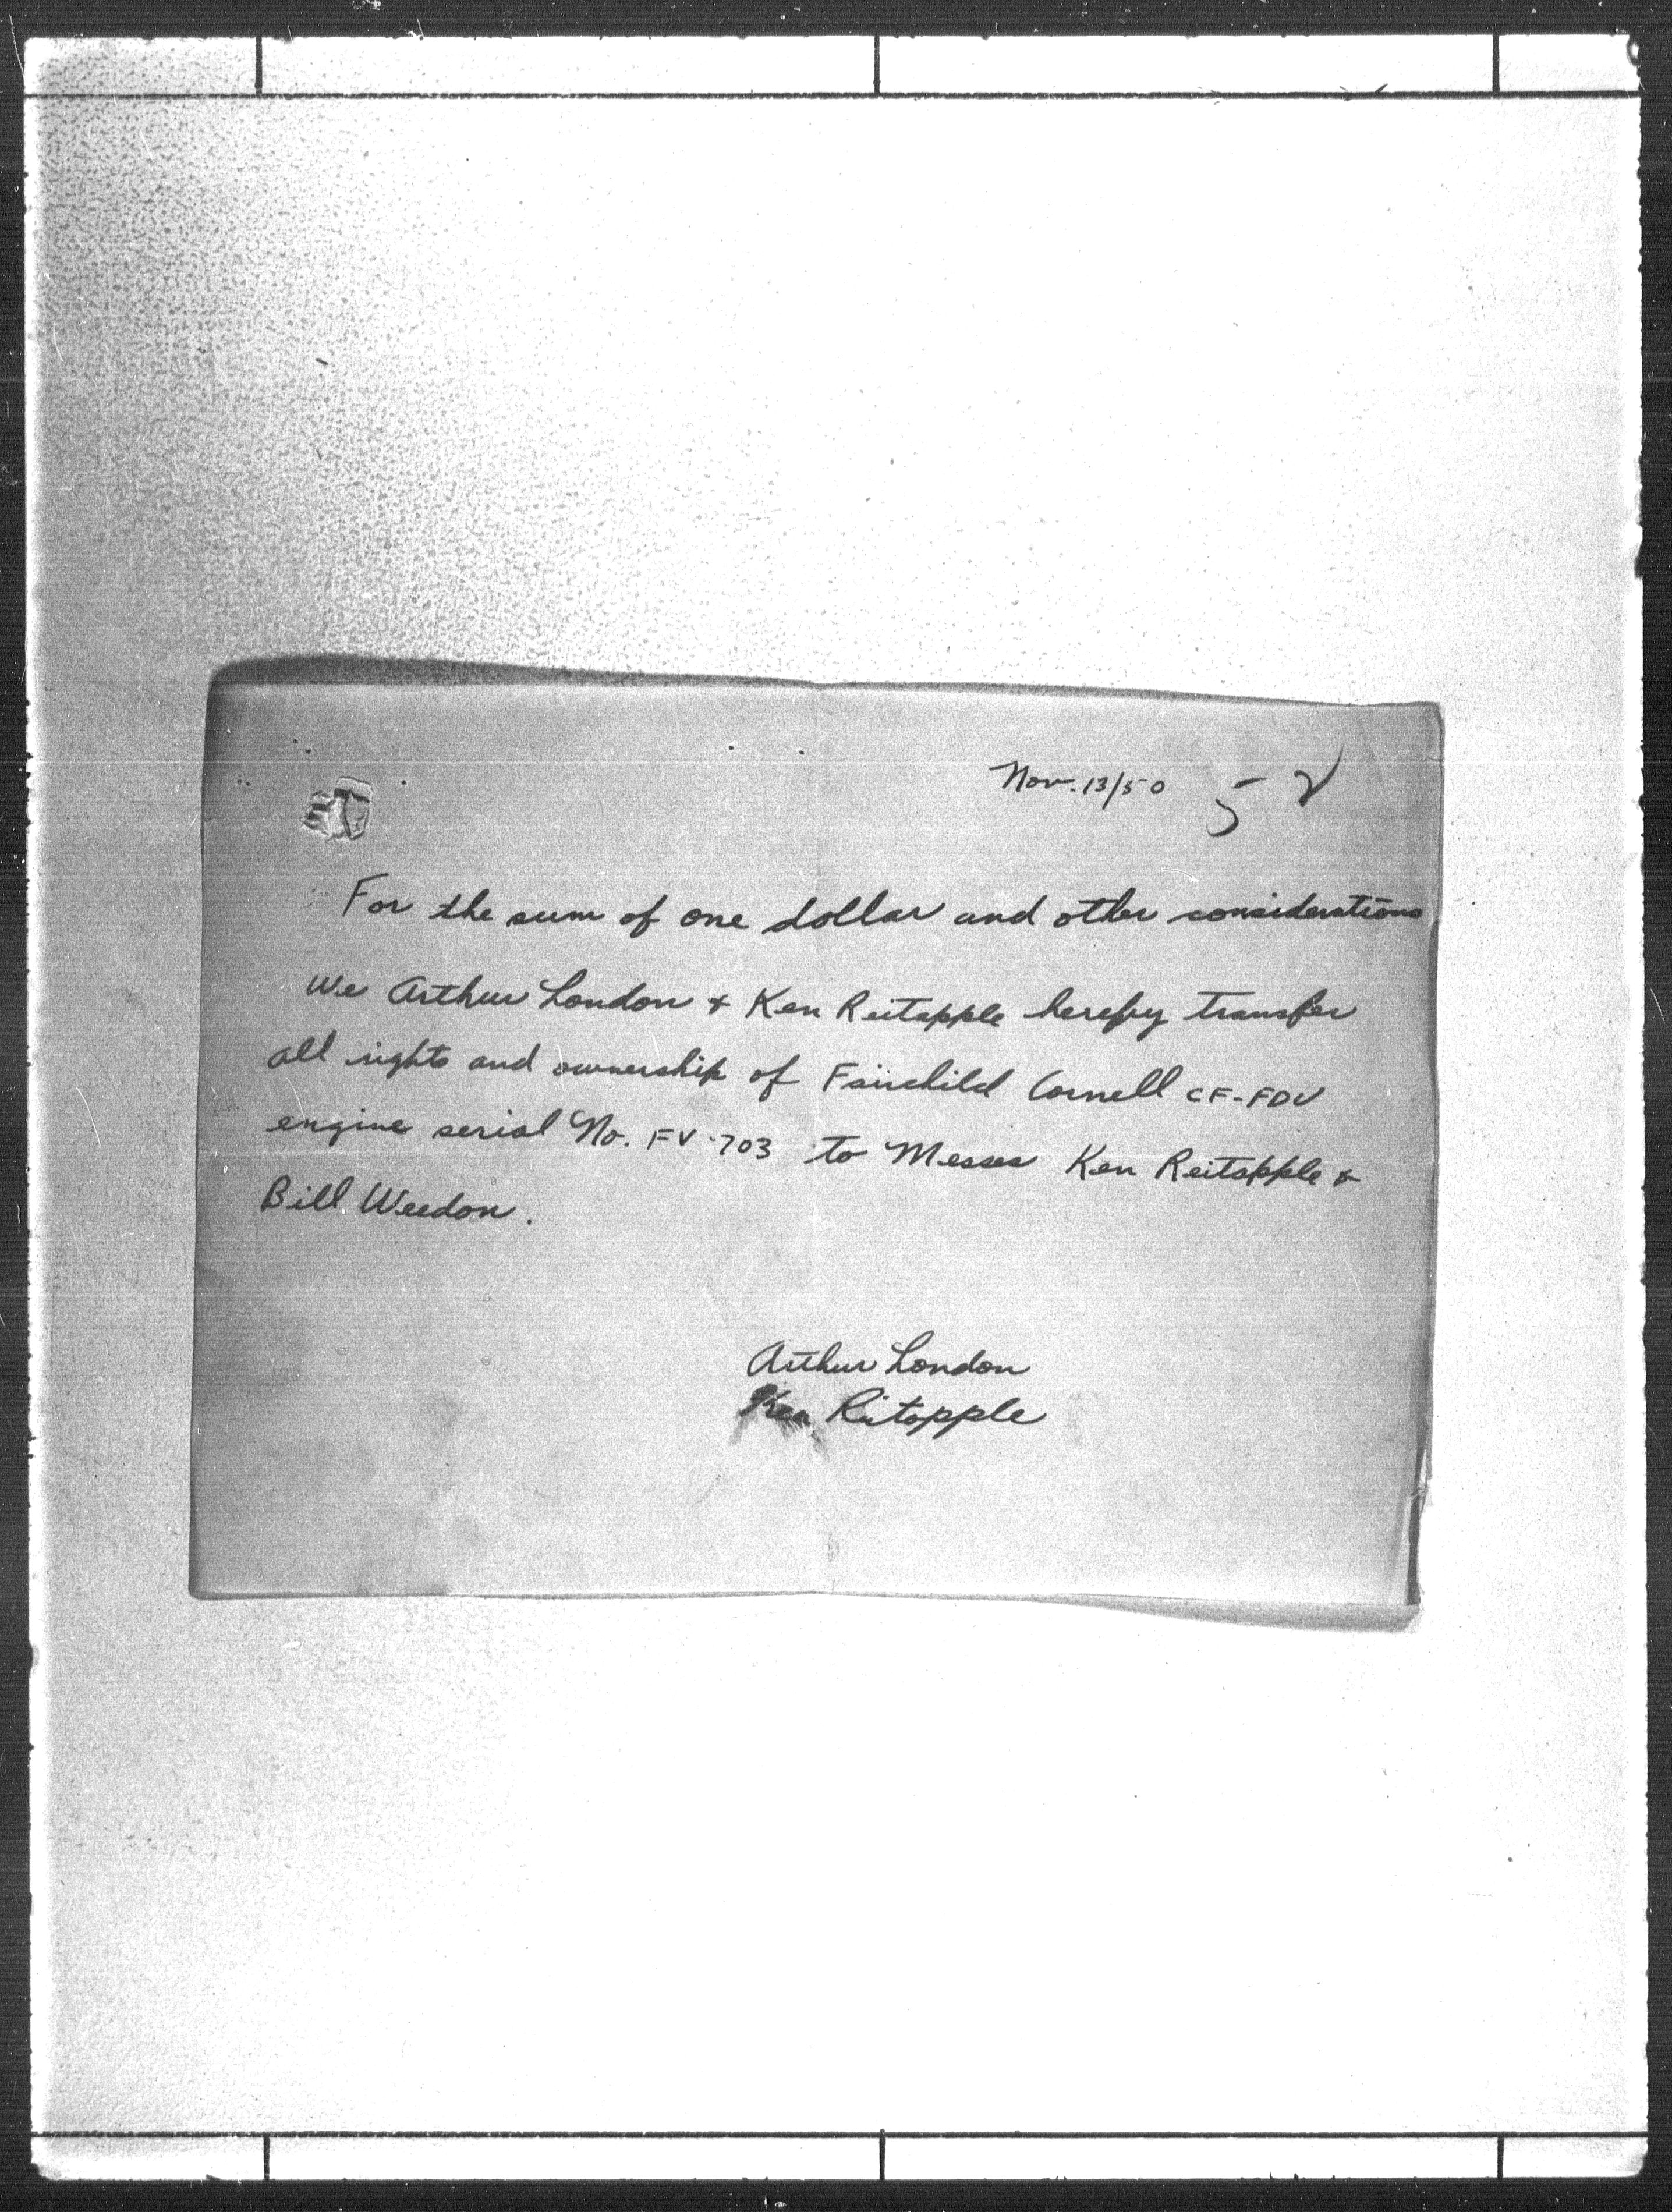 Nov. 13/50 52
For the sum of one dollar and other considerations
We Arthur London & Ken Reitapple hereby transfer
all rights and ownership of Fairchild Cornell CF-FDV
engine serial No. FV-703 to Messes Ken Reitapple &
Bill Weedon.
Arthur London
Ken Ritapple